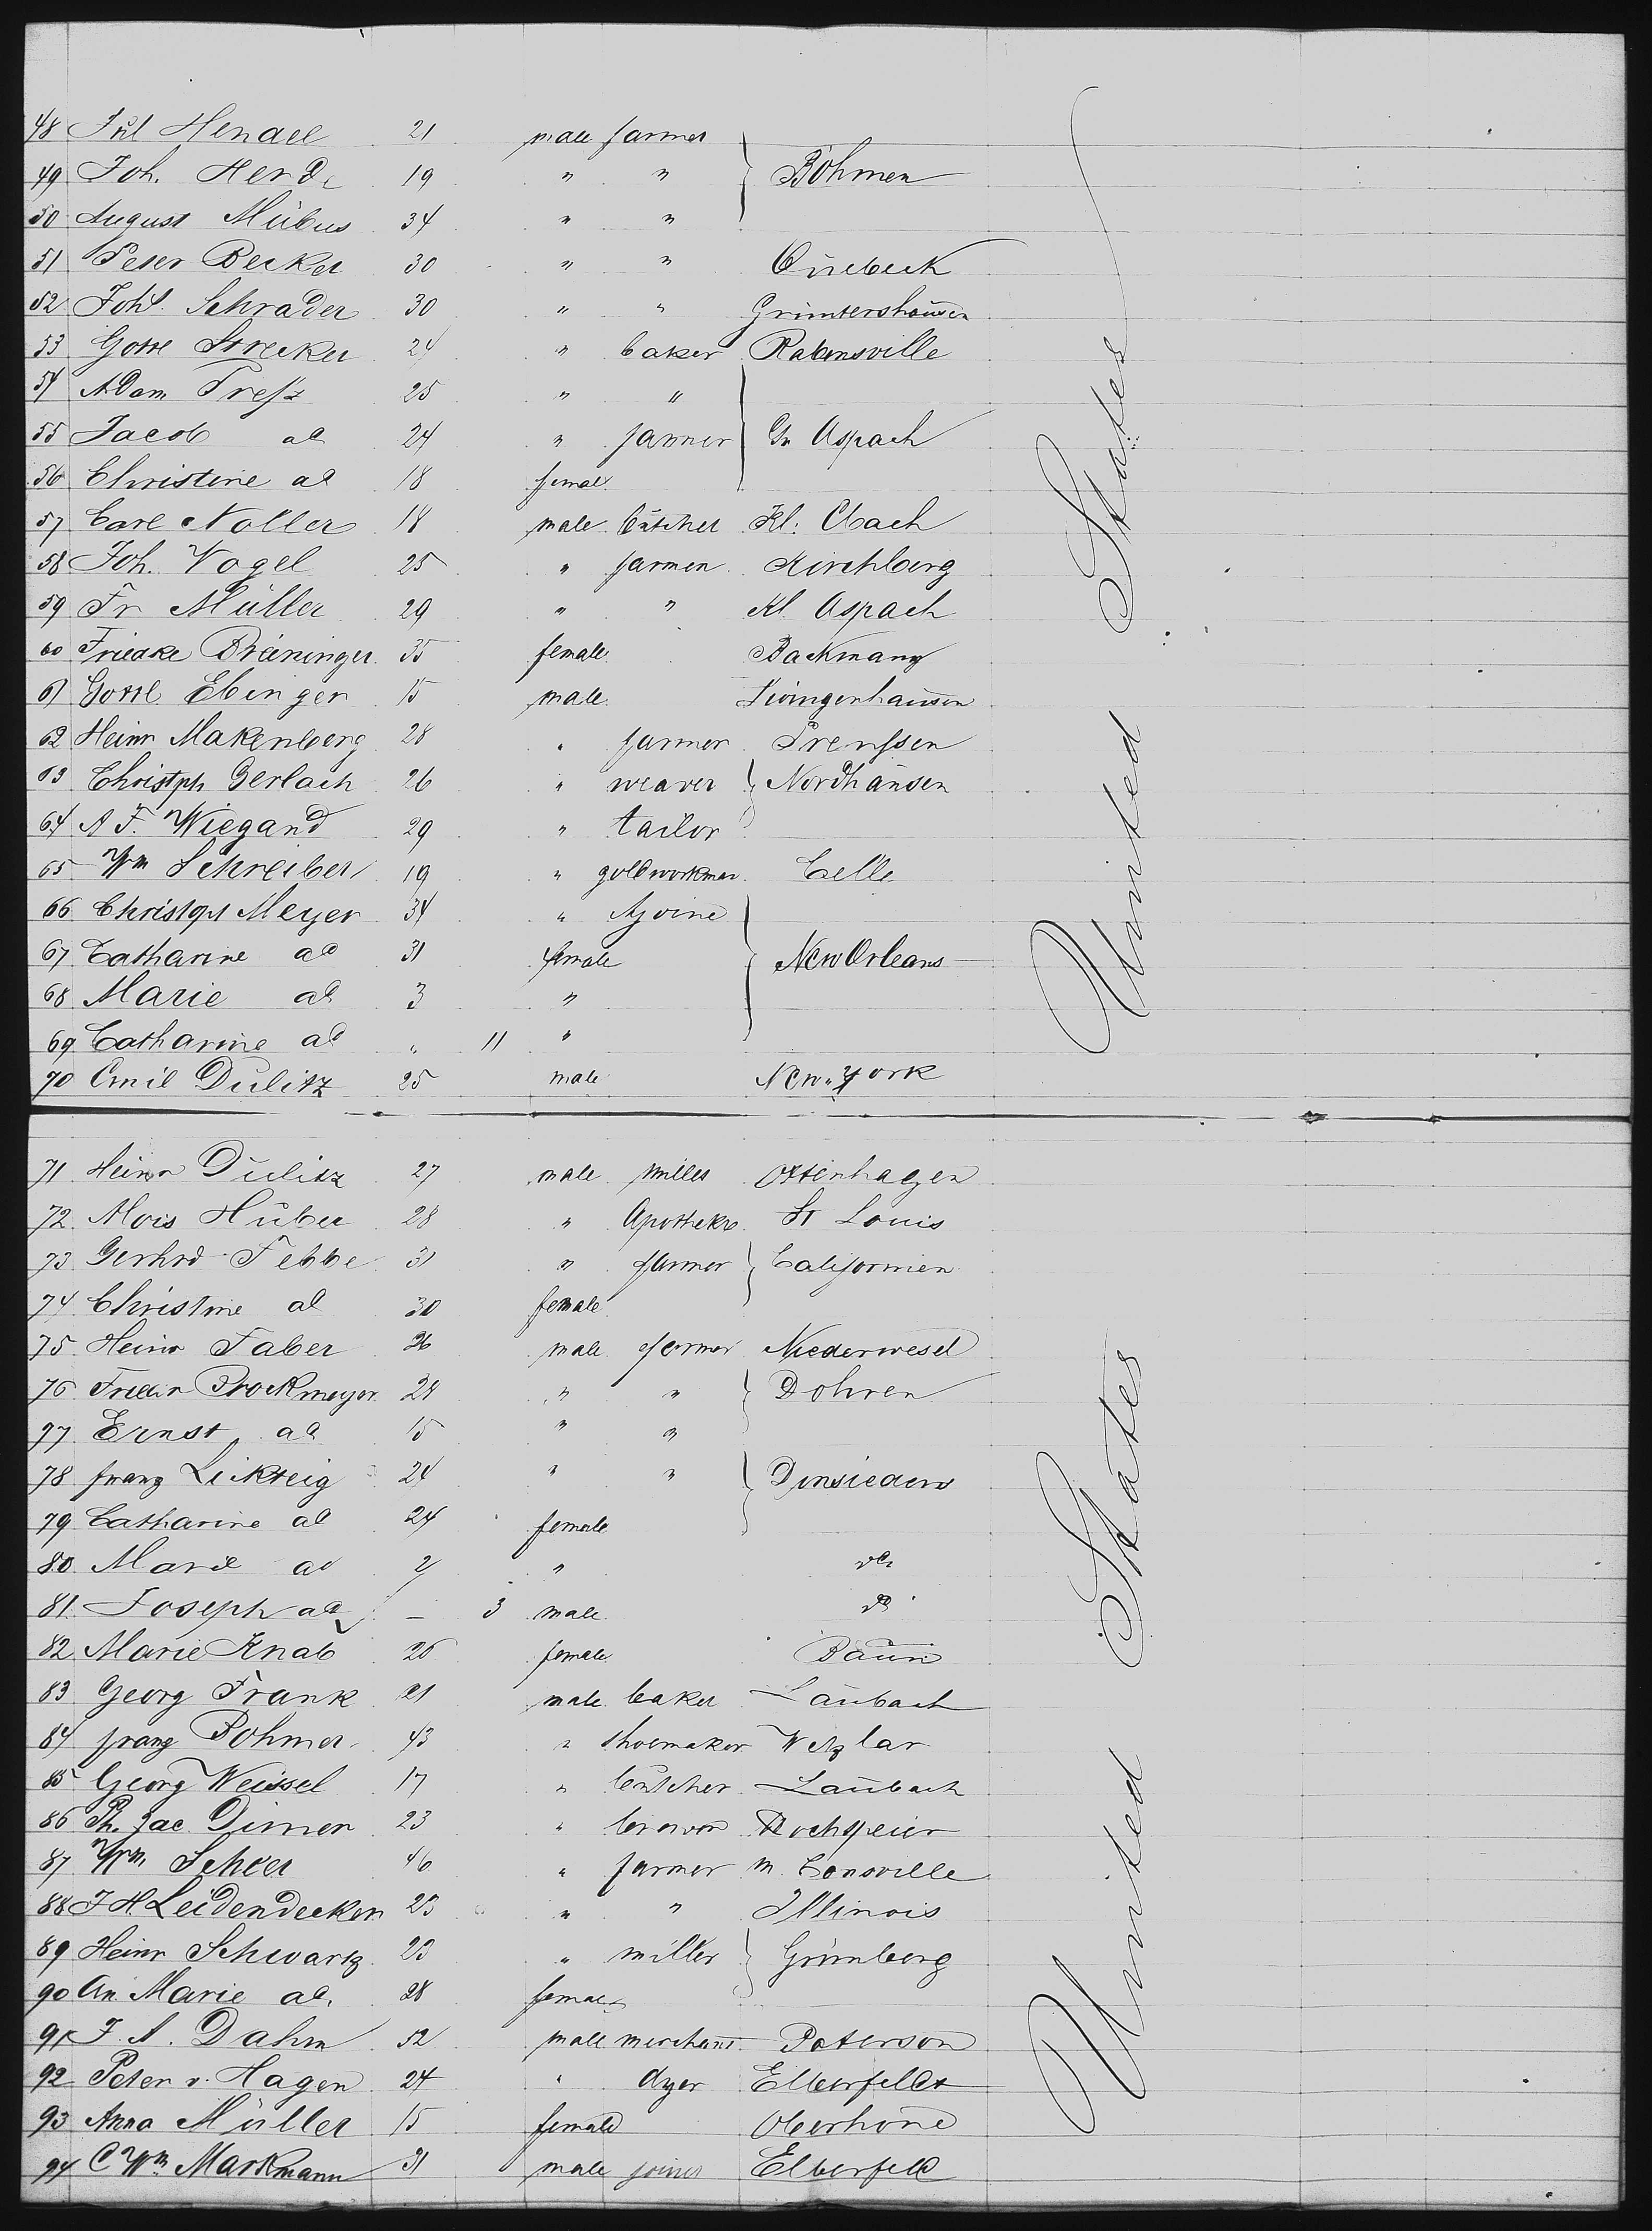 48 Jul Hendel 21 male farmer
49 Joh. Hende 19 " " Böhmen
50 August Mübus 34 " "
51 Peter Becker 30 " "
52 Joht. Schrader 30 " " Grüntershausen
53 Gottl Strecker 24 " baker Rabensville
54 Adam Trefz 25 " "
55 Jacob do 24 " farmer Gr Aspach
56 Christine do 18 female
57 Carl Noller 18 male butcher Kl.
58 Joh. Vogel 25 " farmer Kirchberg
59 Fr Müller 29 " " Kl. Aspach
60 Friedke Breininger 35 female Backnang
61 Gottl Ebinger 15 male
62 Heinr Makenberg 28 " farmer Preussen
63 Christph Gerlach 26 " weaver Nordhausen
64 A F. Wiegand 29 " tailor
65 Wm Schreiber 19 " goldworkman Celle
66 Christoph Meyer 34 "
67 Catharine do 31 female New Orleans
68 Marie do 3 "
69 Catharine do " 11 "
70 Emil Dulitz 25 male New-York
71 Heinr Dulitz 27 male miller Ottenhagen
72 Alois Huber 28 " Apotheke St Louis
73 Gerhrd Tebbe 31 " farmer Californien
74 Christine do 30 female
75 Heinr Faber 26 male farmer Niederwesel
76 Friedr Brockmeyer 28 " " Dohren
77 Ernst do 15 " "
78 franz Lickteig 24 " "
79 Catharine do 24 female
80 Marie do 2 " do
81 Joseph do — 3 male do
82 Marie Knab 26 female
83 Georg Frank 21 male baker Laubach
84 franz Bohmer 43 " shoemaker Wetzlar
85 Georg Weissel 17 " butcher Laubach
86 Ph. Jac Dimer 23 " brewer Hochspeier
87 Wm Scheer 46 " farmer
88 J H Leidendecker 23 " " Illinois
89 Heinr Schwartz 23 " miller Grünberg
90 An Marie do. 28 female
91 J. A. Dahm 52 male merchant Paterson
92 Peter v. Hagen 24 " dyer Elberfeldt
93 Anna Müller 15 female Oberhone
94 C Wm Markmann 31 male joiner Elberfeld
United States
United States